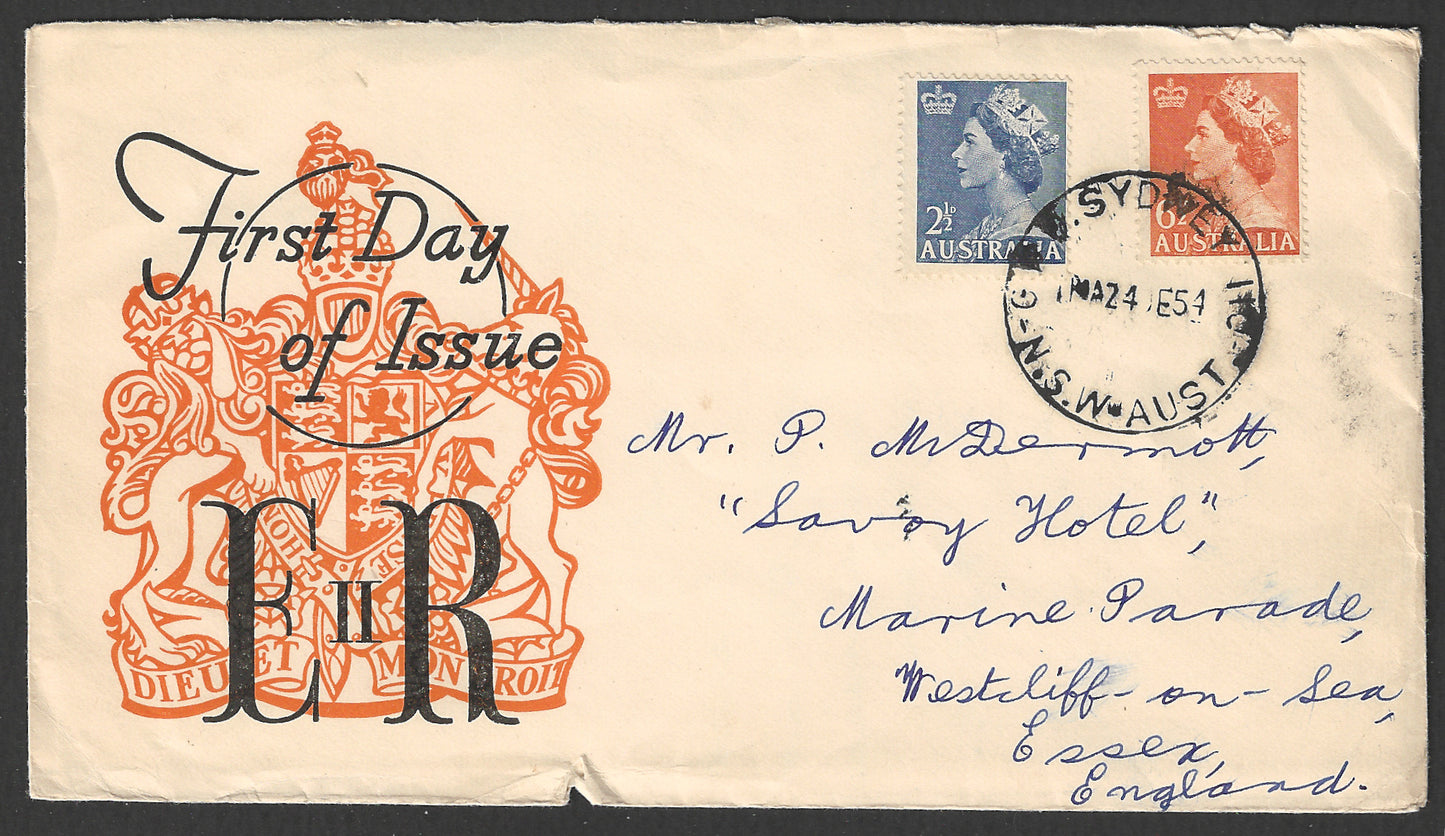 First Day
of Issue
E II R
DIEU ET MON DROIT
HON
2½D
AUSTRALIA
6½
AUSTRALIA
SYDNEY
24 JE54
N.S.W-AUST
Mr. P. McDermott,
"Savoy Hotel",
Marine Parade,
Westcliff-on-Sea,
Essex,
England.